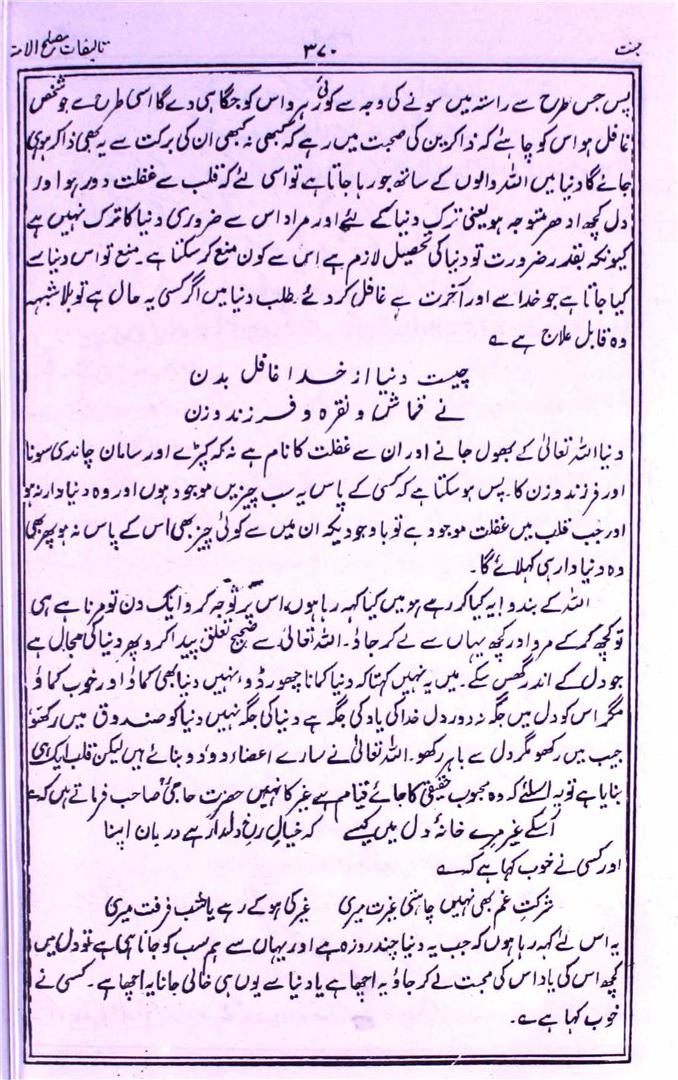 جنت ۳۷۰ تالیفات مصلح الامۃ
پس جس طرح سے راستہ میں سونے کی وجہ سے کوئی رہرو اس کو جگا ہی دے گا اسی طرح سے جو شخص
غافل ہو اس کو چاہئے کہ ذاکرین کی صحبت میں رہے کہ کبھی نہ کبھی ان کی برکت سے یہ بھی ذاکر ہو ہی
جائے گا دنیا میں اللہ والوں کے ساتھ جو رہا جاتا ہے تو اسی لئے کہ قلب سے غفلت دور ہو اور
دل کچھ ادھر متوجہ ہو یعنی ترک دنیا کے لئے اور مراد اس سے ضروری دنیا کا ترک نہیں ہے
کیونکہ بقدر ضرورت تو دنیا کی تحصیل لازم ہے اس سے کون منع کر سکتا ہے۔ منع تو اس دنیا سے
کیا جاتا ہے جو خدا سے اور آخرت سے غافل کر دے۔ طلب دنیا میں اگر کسی یہ حال ہے تو بلاشبہہ
وہ قابل علاج ہے ؎
چیست دنیا از خدا غافل بدن
نے قماش و نقرہ و فرزند و زن
دنیا اللہ تعالیٰ کے بھول جانے اور ان سے غفلت کا نام ہے نہ کہ کپڑے اور سامان چاندی سونا
اور فرزند و زن کا۔ پس ہو سکتا ہے کہ کسی کے پاس یہ سب چیزیں موجود ہوں اور وہ دنیادار نہ ہو
اور جب قلب میں غفلت موجود ہے تو باوجودیکہ ان میں سے کوئی چیز بھی اس کے پاس نہ ہو پھر بھی
وہ دنیا دار ہی کہلائے گا۔
اللہ کے بندو! یہ کیا کر رہے ہو میں کیا کہہ رہا ہوں، اس پر توجہ کرو ایک دن تو مرنا ہے ہی
تو کچھ کر کے مرو اور کچھ یہاں سے لے کر جاؤ۔ اللہ تعالیٰ سے صحیح تعلق پیدا کرو پھر دنیا کی مجال ہے
جو دل کے اندر گھس سکے۔ میں یہ نہیں کہتا کہ دنیا کمانا چھوڑ دو، نہیں دنیا بھی کماؤ اور خوب کماؤ
مگر اس کو دل میں جگہ نہ دو، دل خدا کی یاد کی جگہ ہے دنیا کی جگہ نہیں دنیا کو صندوق میں رکھو
جیب میں رکھو مگر دل سے باہر رکھو۔ اللہ تعالیٰ نے سارے اعضاء دو دو بنائے ہیں لیکن قلب ایک ہی
بنایا ہے تو یہ اسلئے کہ وہ محبوب حقیقی کا جائے قیام ہے غیر کا نہیں حضرت حاجیؒ صاحب فرماتے ہیں کہ ؎
آسکے غیر مرے خانۂ دل میں کیسے کہ خیال رخ دلدار ہے دربان اپنا
اور کسی نے خوب کہا ہے کہ ؎
شرکت غم بھی نہیں چاہتی غیرت میری غیر کی ہو کے رہے یا شب فرقت میری
یہ اس لئے کہہ رہا ہوں کہ جب یہ دنیا چند روزہ ہے اور یہاں سے ہم سب کو جانا ہی ہے تو دل میں
کچھ اس کی یاد اس کی محبت لے کر جاؤ یہ اچھا ہے یا دنیا سے یوں ہی خالی جانا یہ اچھا ہے۔ کسی نے
خوب کہا ہے ؎۔